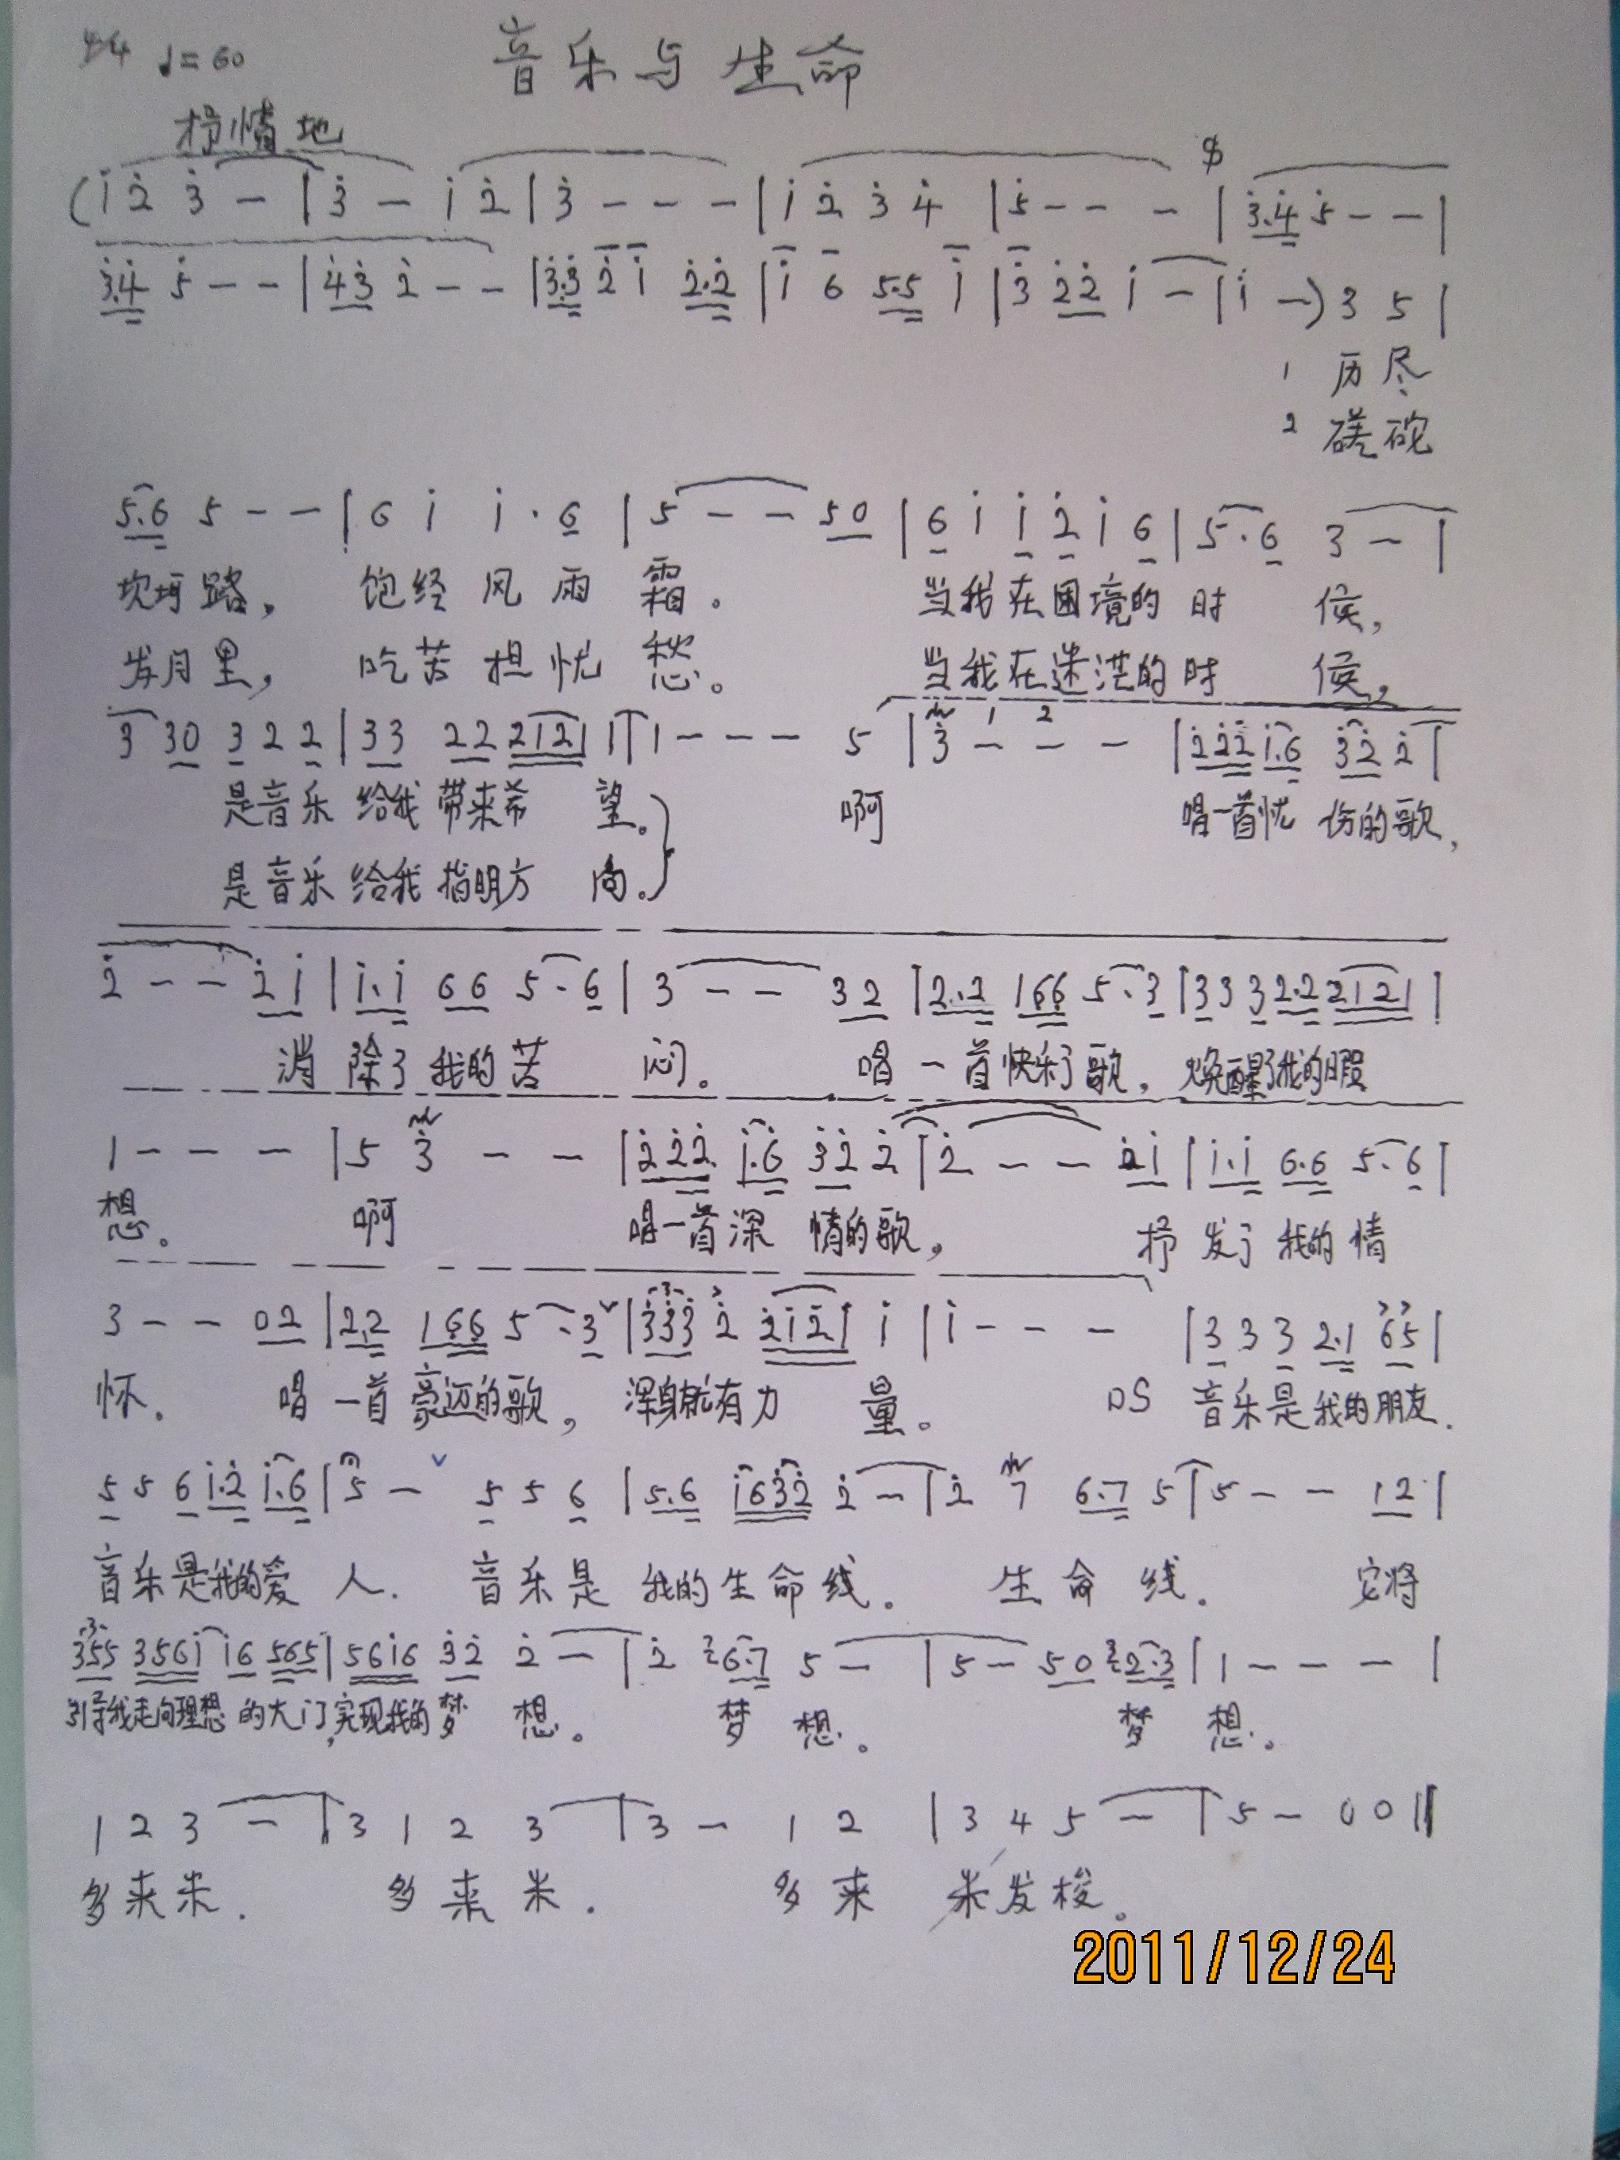 4/4 ♩=60 音乐与生命
抒情地
(i̇ 2̇ 3̇ — | 3̇ — i̇ 2̇ | 3̇ — — — | i̇ 2̇ 3̇ 4̇ | 5̇ — — — | 3̇.4̇ 5̇ — — |
3̇4̇ 5̇ — — | 4̇3̇ 2̇ — — | 3̇.3̇ 2̇ i̇ 2̇.2̇ | i̇ 6 5.5 i̇ | 3̇ 2̇2̇ i̇ — | i̇ —) 3 5 |
1 历尽
2 磋砣
5.6 5 — — | 6 i̇ i̇ . 6 | 5 — — 50 | 6 i̇ i̇ 2̇ i̇ 6 | 5 . 6 3 — |
坎坷路, 饱经风雨霜。 当我在困境的时候,
岁月里, 吃苦担忧愁。 当我在迷茫的时候,
3 30 3 2 2 | 33 22 2121 1 | 1 — — — 5 | 3̇ — — — | 2̇2̇2̇ i̇.6 3̇2̇ 2̇ |
是音乐给我带来希望。 啊 唱一首忧伤的歌,
是音乐给我指明方向。
2̇ — — 2̇i̇ | i̇.i̇ 66 5.6 | 3 — — 32 | 2.2 166 5.3 | 3 3 3 2.2 2121 |
消除了我的苦闷。 唱一首快乐了歌, 焕醒了我的暇
1 — — — | 5 3̇ — — | 2̇2̇2̇ i̇.6 3̇2̇ 2̇ | 2̇ — — 2̇i̇ | i̇.i̇ 6.6 5.6 |
想。 啊 唱一首深情的歌, 抒发了我的情
3 — — 02 | 2.2 166 5.3 | 3̇3̇3̇ 2̇ 2̇i̇2̇i̇ i̇ | i̇ — — — | 3 3 3 2.1 65 |
怀. 唱一首豪迈的歌, 浑身就有力量。 DS 音乐是我的朋友.
5 5 6 i̇.2̇ i̇.6 | 5 — 5 5 6 | 5.6 i̇63̇2̇ 2̇ — | 2̇ 7 6.7 5 | 5 — — 12 |
音乐是我的爱人. 音乐是我的生命线. 生命线. 它将
355 356i̇ i̇6 565 | 56i̇6 3̇2̇ 2̇ — | 2̇ 6.7 5 — | 5 — 50 2.3 | 1 — — — |
引导我走向理想的大门,实现我的梦想。 梦想. 梦想。
1 2 3 — | 3 1 2 3 | 3 — 1 2 | 3 4 5 — | 5 — 0 0 ‖
多来米. 多来米. 多来米发梭。
2011/12/24